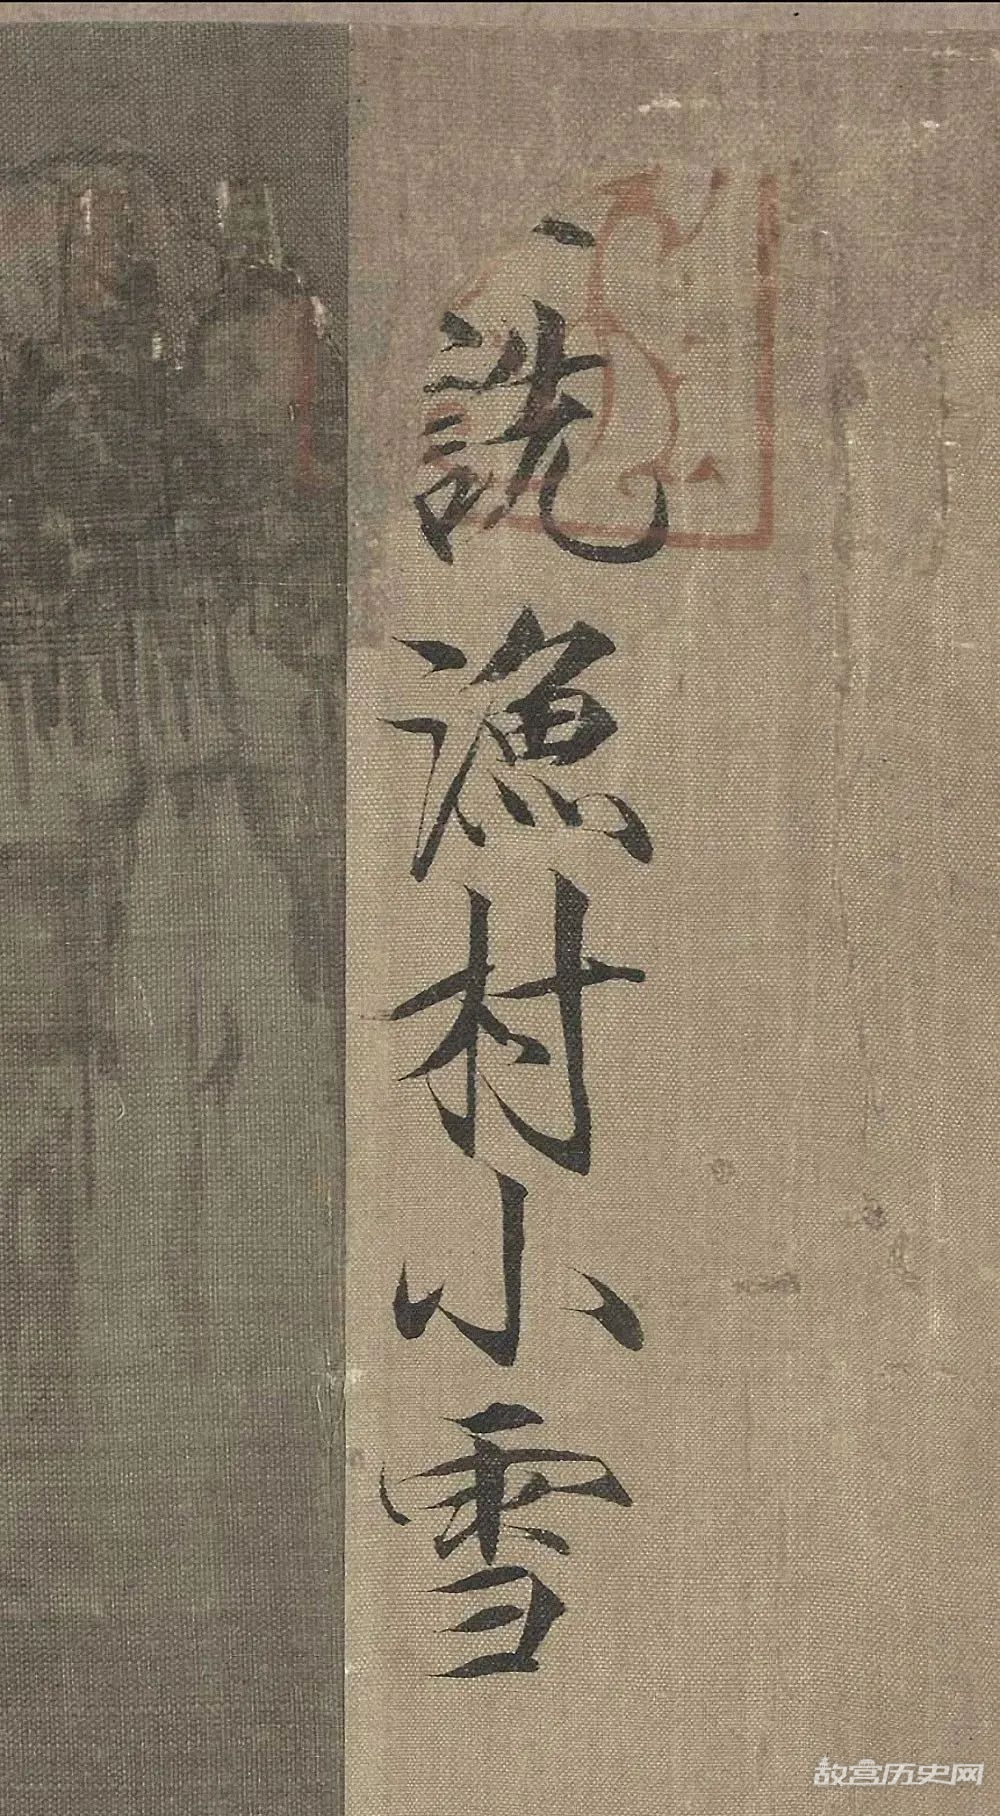 王詵漁村小雪
故宫历史网